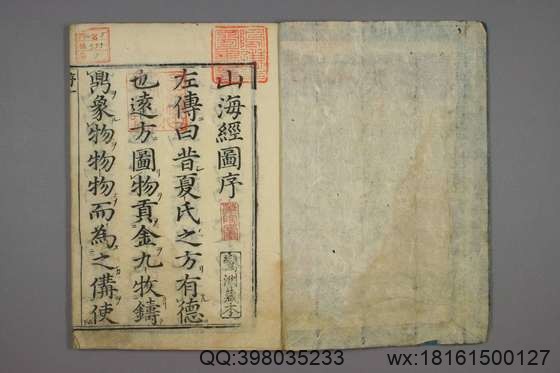 山海經圖序
左傳曰昔夏氏之方有德
也遠方圖物貢金九牧鑄
鼎象物物物而為之備使
QQ:398035233
wx:18161500127